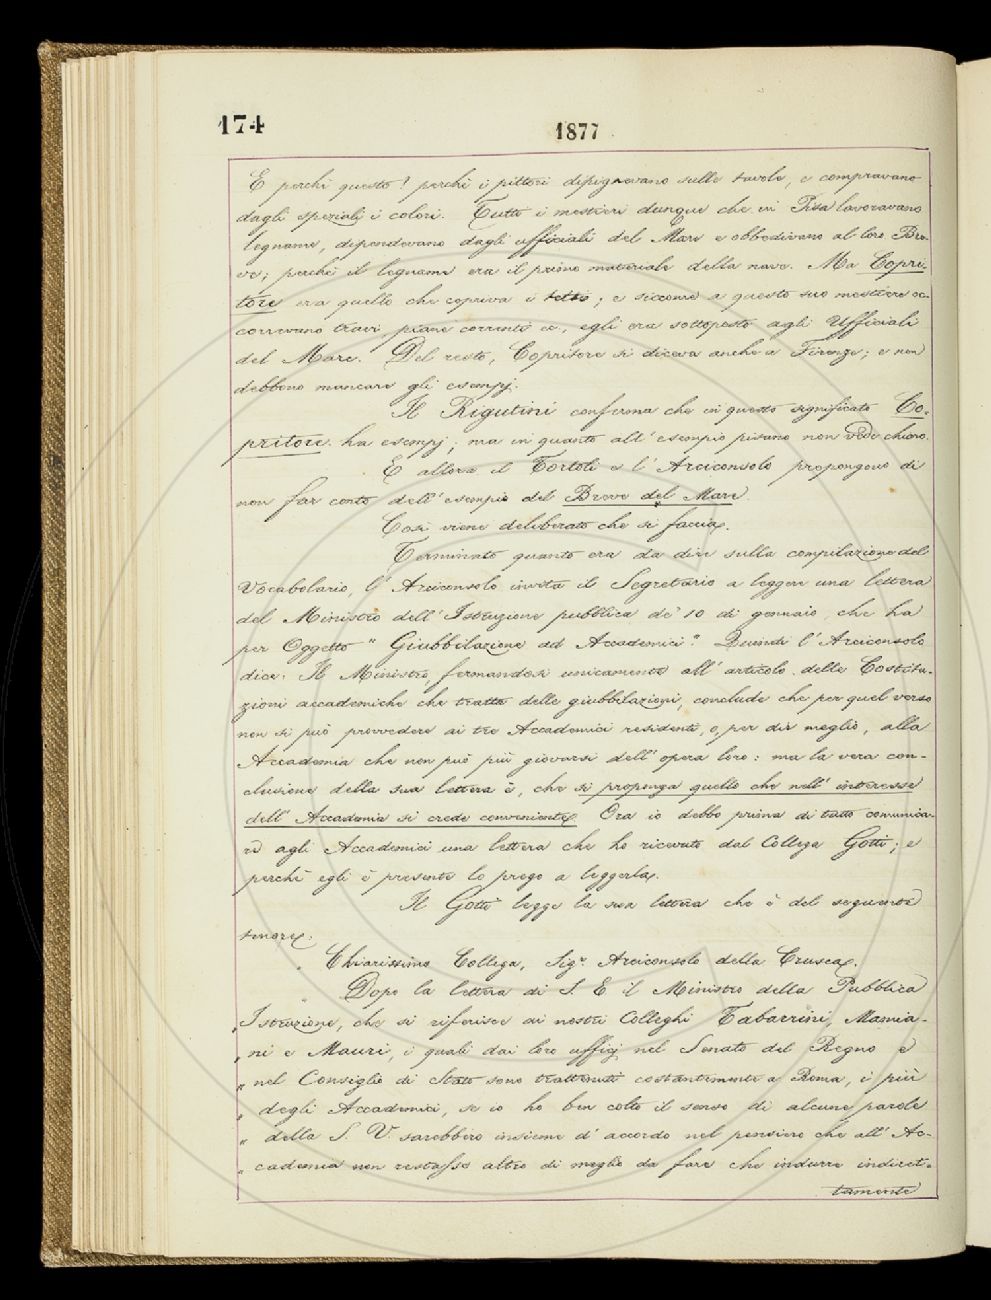 174
1877
E perchè questo? perchè i pittori dipignevano sulle tavole, e compravano
dagli speziali i colori. Tutti i mestieri dunque che in Pisa lavoravano
legname, dipendevano dagli ufficiali del Mare e obbedivano al loro Bre-
ve; perchè il legname era il primo materiale della nave. Ma Copri-
tore era quello che copriva i tetti; e siccome a questo suo mestiere oc-
correvano travi, piane correnti ec., egli era sottoposto agli Ufficiali
del Mare. Del resto, Copritore si diceva anche a Firenze; e non
debbono mancare gli esempj.
Il Rigutini conferma che in questo significato Co-
pritore ha esempj; ma in quanto all'esempio pisano non vede chiaro.
E allora il Tortoli e l'Arciconsolo propongono di
non far conto dell'esempio del Breve del Mare.
Così viene deliberato che si faccia.
Terminato quanto era da dire sulla compilazione del
Vocabolario, l'Arciconsolo invita il Segretario a leggere una lettera
del Ministro dell'Istruzione pubblica de' 10 di gennaio, che ha
per Oggetto "Giubbilazione ad Accademici". Quindi l'Arciconsolo
dice: Il Ministro, fermandosi unicamente all'articolo delle Costitu-
zioni accademiche che tratta delle giubbilazioni, conclude che per quel verso
non si può provvedere ai tre Accademici residenti, o, per dir meglio, alla
Accademia che non può più giovarsi dell'opera loro: ma la vera con-
clusione della sua lettera è, che si proponga quello che nell'interesse
dell'Accademia si crede conveniente. Ora io debbo prima di tutto comunica-
re agli Accademici una lettera che ho ricevuto dal Collega Gotti; e
perchè egli è presente lo prego a leggerla.
Il Gotti legge la sua lettera che è del seguente
tenore.
Chiarissimo Collega, Sigr. Arciconsolo della Crusca.
" Dopo la lettera di S. E. il Ministro della Pubblica
" Istruzione, che si riferisce ai nostri Colleghi Tabarrini, Mamia-
" ni e Mauri, i quali dai loro uffizj nel Senato del Regno e
" nel Consiglio di Stato sono trattenuti costantemente a Roma, i più
" degli Accademici, se io ho ben colto il senso di alcune parole
" della S. V. sarebbero insieme d'accordo nel pensiero che all'Ac-
" cademia non restasse altro di meglio da fare che indurre indiret-
tamente